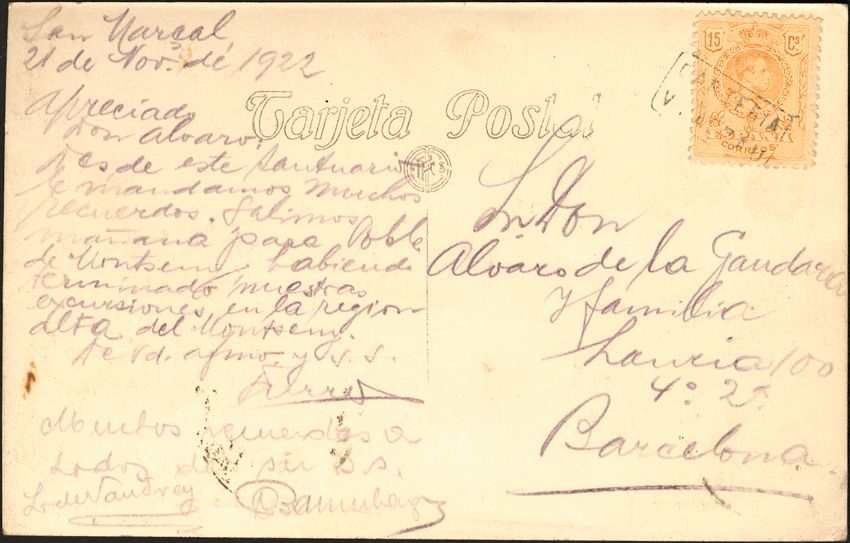 San Marçal
21 de Novᵉ. de 1922
Apreciado
Don Alvaro:
Desde este Santuario
le mandamos muchos
recuerdos. Salimos
mañana para Poble
de Montseny habiendo
terminado nuestras
excursiones en la region
alta del Montseny.
De Vd. afmo. y s.s.
Muchos recuerdos a
todos de su s.s.
Tarjeta Postal
15 Cs
CORREOS
CARTERIA
Sr. Don
Alvaro de la Gandara
y familia
Lauria 100
4º 2ª
Barcelona